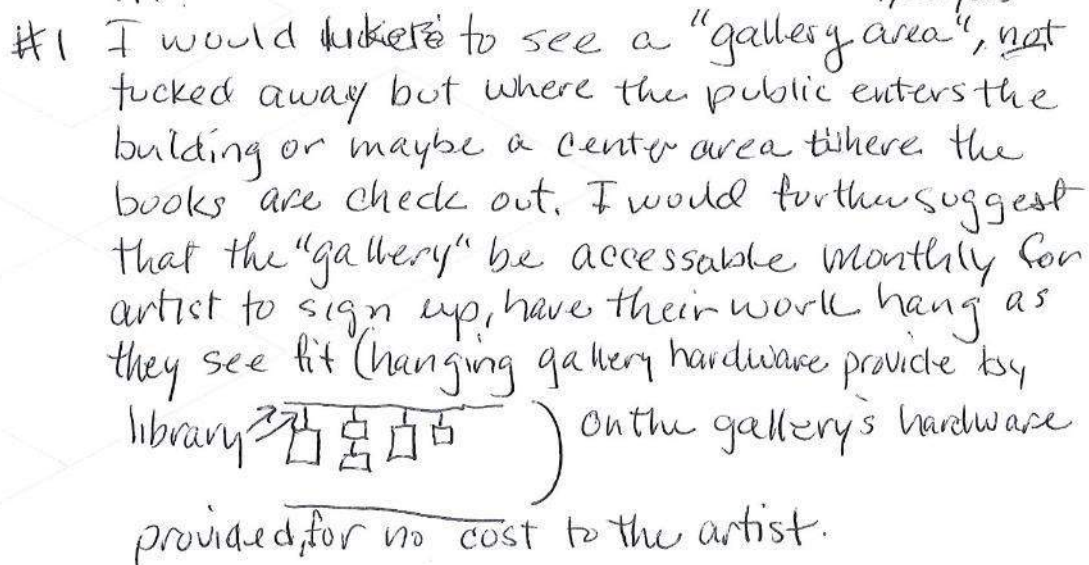 #1 I would like to see a "gallery area", not
tucked away but where the public enters the
building or maybe a center area where the
books are check out. I would further suggest
that the "gallery" be accessable monthly for
artist to sign up, have their work hang as
they see fit (hanging gallery hardware provide by
library ) on the gallery's hardware
provided, for no cost to the artist.